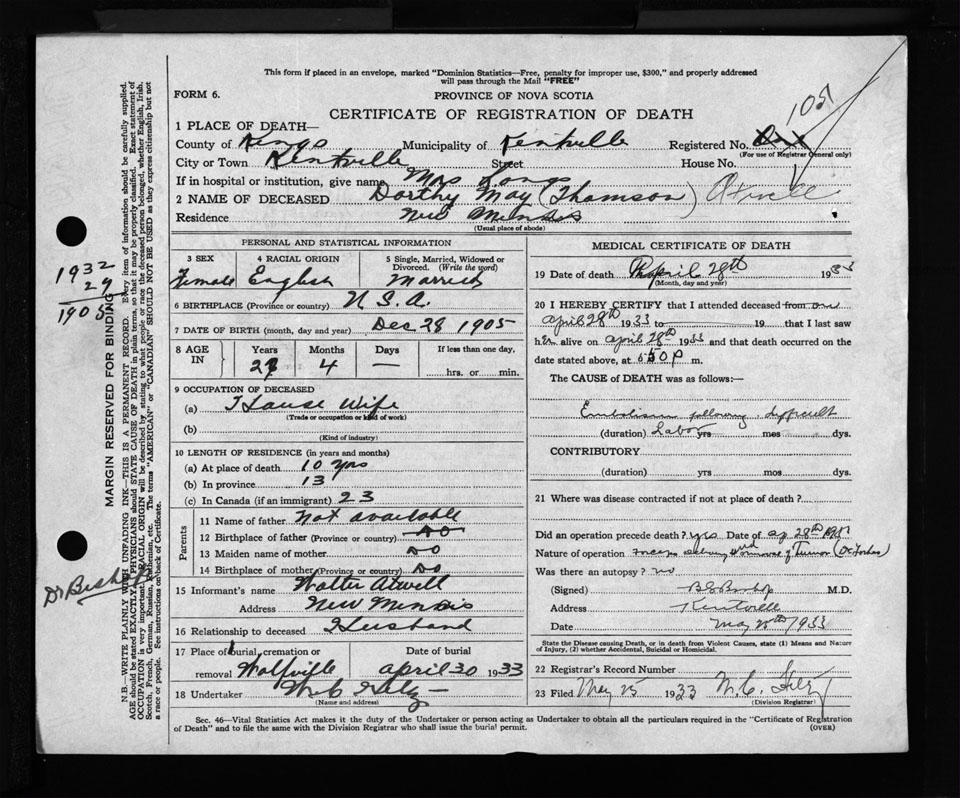 This form if placed in an envelope, marked "Dominion Statistics—Free, penalty for improper use, $300," and properly addressed
will pass through the Mail "FREE"
FORM 6.
PROVINCE OF NOVA SCOTIA
CERTIFICATE OF REGISTRATION OF DEATH
105
1 PLACE OF DEATH—
County of Kings Municipality of Kentville Registered No.
(For use of Registrar General only)
City or Town Kentville Street House No.
If in hospital or institution, give name Mrs Longs
2 NAME OF DECEASED Dorthy May (Thomson) Atwell
Residence New Minas
(Usual place of abode)
PERSONAL AND STATISTICAL INFORMATION
3 SEX 4 RACIAL ORIGIN 5 Single, Married, Widowed or Divorced. (Write the word)
Female English Married
6 BIRTHPLACE (Province or country) U.S.A.
7 DATE OF BIRTH (month, day and year) Dec 28 1905
8 AGE IN Years Months Days If less than one day,
27 4 — hrs. or min.
9 OCCUPATION OF DECEASED
(a) House Wife
(Trade or occupation or kind of work)
(b)
(Kind of industry)
10 LENGTH OF RESIDENCE (in years and months)
(a) At place of death 10 yrs
(b) In province 13
(c) In Canada (if an immigrant) 23
Parents
11 Name of father Not available
12 Birthplace of father (Province or country) Do
13 Maiden name of mother Do
14 Birthplace of mother (Province or country) Do
15 Informant's name Walter Atwell
Address New Minas
16 Relationship to deceased Husband
17 Place of burial, cremation or removal Date of burial
Wolfville April 30 1933
18 Undertaker
(Name and address)
MEDICAL CERTIFICATE OF DEATH
19 Date of death April 28th 1933
(Month, day and year)
20 I HEREBY CERTIFY that I attended deceased from on
April 28th 1933 to 19 that I last saw
her alive on april 28th 1933 and that death occurred on the
date stated above, at 6:50 P m.
The CAUSE of DEATH was as follows:—
Embolism following difficult
(duration) Labor yrs mos dys.
CONTRIBUTORY
(duration) yrs mos dys.
21 Where was disease contracted if not at place of death?
Did an operation precede death? yes Date of ap 28th
Nature of operation forceps delivery removal of Tumor (Dr Forbes)
Was there an autopsy? no
(Signed) M.D.
Address Kentville
Date May 1933
State the Disease causing Death, or in death from Violent Causes, state (1) Means and Nature
of Injury, (2) whether Accidental, Suicidal or Homicidal.
22 Registrar's Record Number
23 Filed May 25 1933
(Division Registrar)
Sec. 46—Vital Statistics Act makes it the duty of the Undertaker or person acting as Undertaker to obtain all the particulars required in the "Certificate of Registration
of Death" and to file the same with the Division Registrar who shall issue the burial permit.
(OVER)
1932
27
1905
Dr Bishop
MARGIN RESERVED FOR BINDING
N.B.—WRITE PLAINLY WITH UNFADING INK—THIS IS A PERMANENT RECORD. Every item of information should be carefully supplied.
AGE should be stated EXACTLY. PHYSICIANS should STATE CAUSE OF DEATH in plain terms, so that it may be properly classified. Exact statement of
OCCUPATION is very important. RACIAL ORIGIN will be described by stating to what people or race the deceased person belonged, whether English, Irish,
Scotch, French, German, Russian, Ruthenian, etc. The terms "AMERICAN" or "CANADIAN" SHOULD NOT BE USED as they express citizenship but not
a race or people. See instructions on back of Certificate.